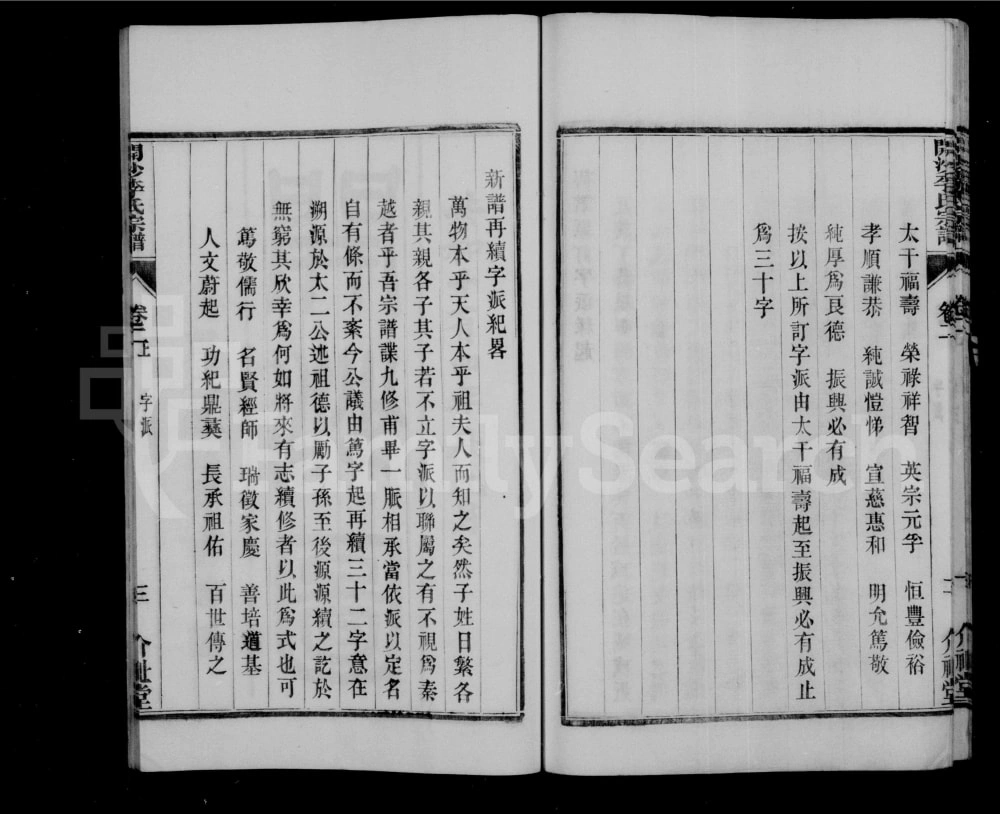 開沙李氏宗譜
卷二
二
介祉堂
太干福壽 榮祿祥智 英宗元孚 恒豐儉裕
孝順謙恭 純誠愷悌 宣慈惠和 明允篤敬
純厚爲良德 振興必有成
按以上所訂字派由太干福壽起至振興必有成止
爲三十字
新譜再續字派紀畧
萬物本乎天人本乎祖夫人而知之矣然子姓日繁各
親其親各子其子若不立字派以聯屬之有不視爲秦
越者乎吾宗譜諜九修甫畢一脈相承當依派以定名
自有條而不紊今公議由篤字起再續三十二字意在
溯源於太二公述祖德以勵子孫至後源源續之訖於
無窮其欣幸爲何如將來有志續修者以此爲式也可
篤敬儒行 名賢經師 瑞徵家慶 善培道基
人文蔚起 功紀鼎彝 長承祖佑 百世傳之
開沙李氏宗譜
卷二
字派
三
介祉堂
FamilySearch